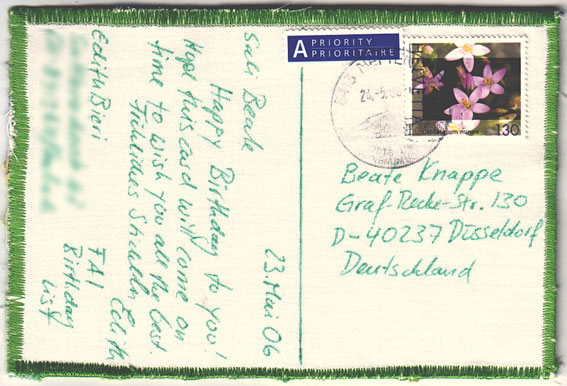 23. Mai 06
Sali Beate
Happy Birthday to you!
Hope this card will come on
time to wish you all the best.
Edith
FAI
Birthday
list
Edith Bieri
A PRIORITY
PRIORITAIRE
130
Beate Knappe
Graf-Recke-Str. 130
D-40237 Düsseldorf
Deutschland